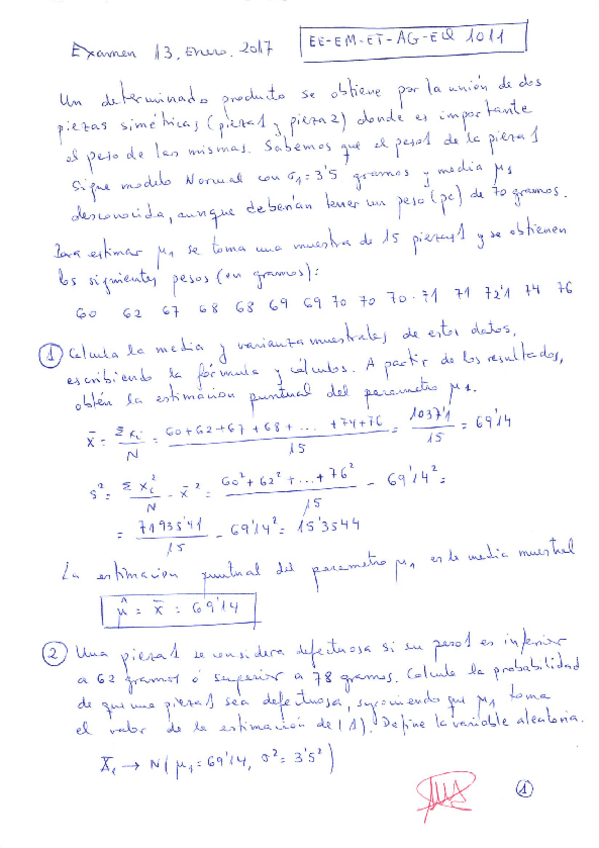 Examen 13, Enero, 2017
EE-EM-ET-AG-EQ 1011
Un determinado producto se obtiene por la unión de dos
piezas simétricas (pieza1 y pieza2) donde es importante
el peso de las mismas. Sabemos que el peso1 de la pieza1
sigue modelo Normal con σ₁=3'5 gramos y media μ₁
desconocida, aunque deberían tener un peso (pc) de 70 gramos.
Para estimar μ₁ se toma una muestra de 15 piezas1 y se obtienen
los siguientes pesos (en gramos):
60 62 67 68 68 69 69 70 70 70.71 71 72'1 74 76
① Calcula la media y varianza muestrales de estos datos,
escribiendo la fórmula y cálculos. A partir de los resultados,
obtén la estimación puntual del parametro μ₁.
x̄ = Σxi / N = 60+62+67+68+...+74+76 / 15 = 1037'1 / 15 = 69'14
s² = Σxi² / N - x̄² = 60²+62²+...+76² / 15 - 69'14² =
= 71935'41 / 15 - 69'14² = 15'3544
La estimación puntual del parametro μ₁ es la media muestral
μ̂ = x̄ = 69'14
② Una pieza1 se considera defectuosa si su peso1 es inferior
a 62 gramos ó superior a 78 gramos. Calcula la probabilidad
de que una pieza1 sea defectuosa, suponiendo que μ₁ toma
el valor de la estimación de (1). Define la variable aleatoria.
X₁ → N(μ₁=69'14, σ²=3'5²)
①